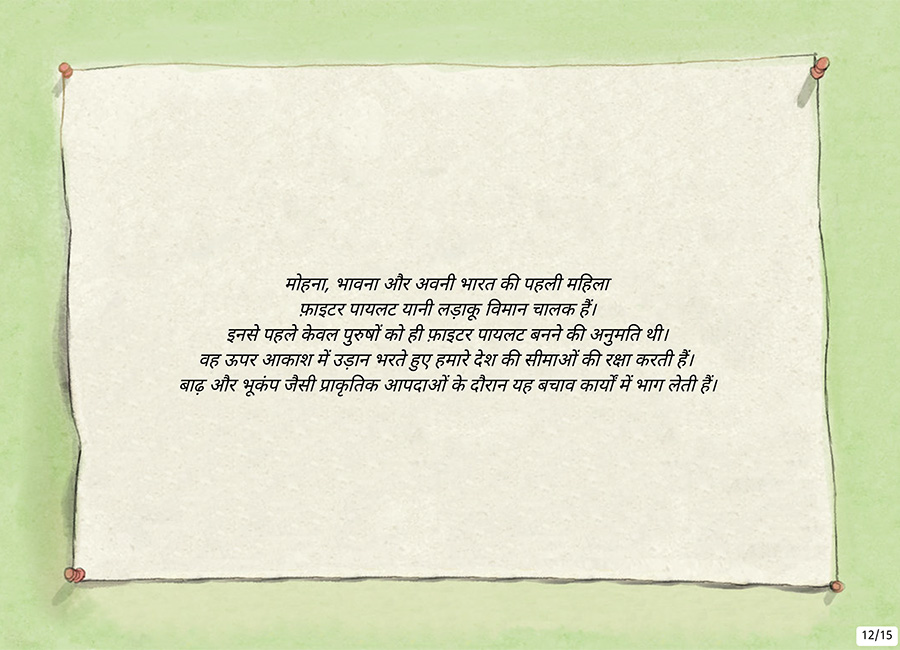 मोहना, भावना और अवनी भारत की पहली महिला
फ़ाइटर पायलट यानी लड़ाकू विमान चालक हैं।
इनसे पहले केवल पुरुषों को ही फ़ाइटर पायलट बनने की अनुमति थी।
वह ऊपर आकाश में उड़ान भरते हुए हमारे देश की सीमाओं की रक्षा करती हैं।
बाढ़ और भूकंप जैसी प्राकृतिक आपदाओं के दौरान यह बचाव कार्यों में भाग लेती हैं।
12/15